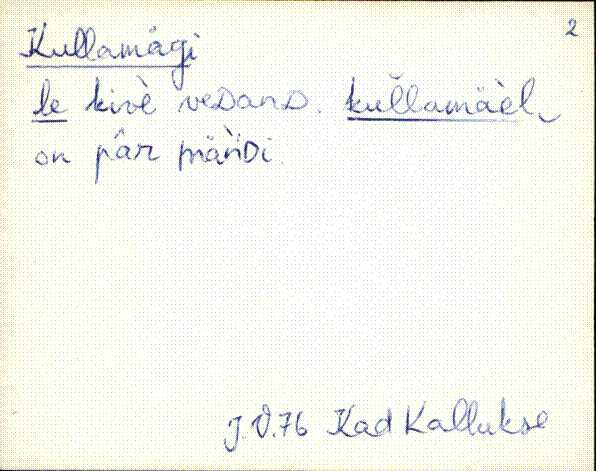 2
Kullamägi
le kivè veDanD. kul̆lamäèl
on pâr mäǹDi.
J.V.76 Kad Kallukse